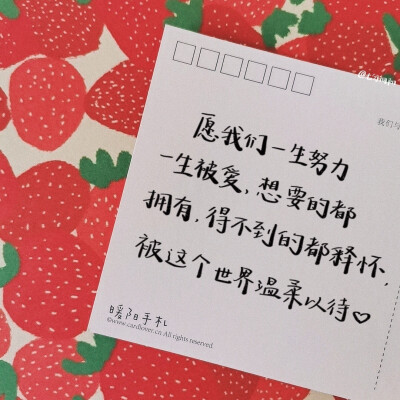 我们与
愿我们一生努力
一生被爱,想要的都
拥有,得不到的都释怀,
被这个世界温柔以待♡
暖阳手札
©www.cardlover.cn All rights reserved.